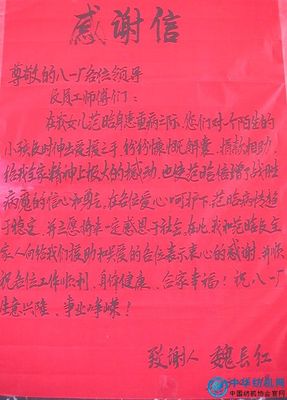 感谢信
尊敬的八一厂各位领导
及员工师傅们：
在我女儿范晗身患重病之际，您们对一个陌生的
小孩及时伸出援助之手，纷纷慷慨解囊，捐款相助，
给我全家精神上极大的感动，也使范晗倍增了战胜
病魔的信心和勇气，在各位爱心呵护下，范晗病情趋
于稳定，并立愿将来一定感恩于社会，在此我和范晗及全
家人向给我们援助和关爱的各位表示衷心的感谢，并顺
祝各位工作顺利、身体健康、合家幸福！祝八一厂
生意兴隆、事业峥嵘！
致谢人 魏长红
中华纺机网
中国纺机协会官网